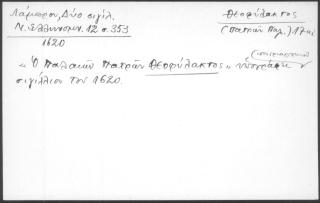 Λάμπρου, Δύο σιγίλ.
Ν. Ελληνομν. 12 σ. 353
1620
Θεοφύλακτος
(Πατρῶν Παλ.) 17 αι
« Ὁ Παλαιῶν Πατρῶν Θεοφύλακτος » ὑπογράφει
σιγίλλιον τοῦ 1620.